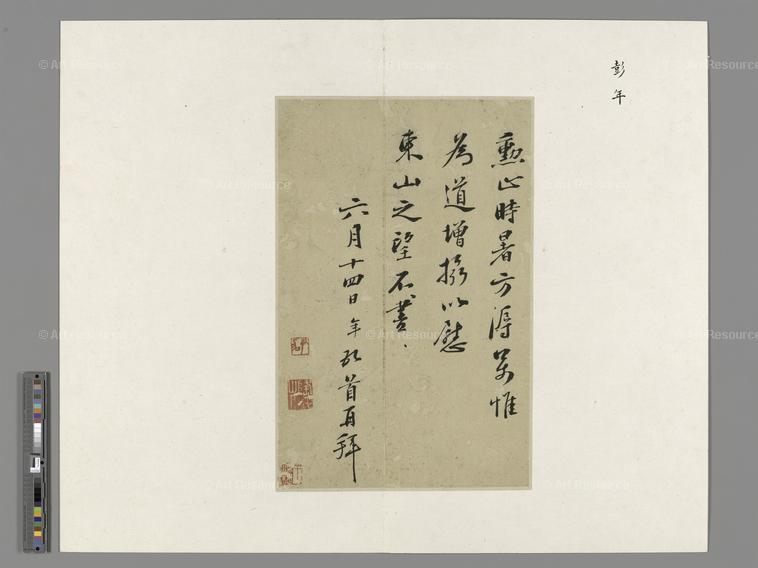 彭年
勳止時暑方溽萬惟
為道增攝以慰
東山之望不盡
六月十四日年頓首再拜
© Art Resource
© Art Resource
© Art Resource
© Art Resource
© Art Resource
© Art Resource
© Art Resource